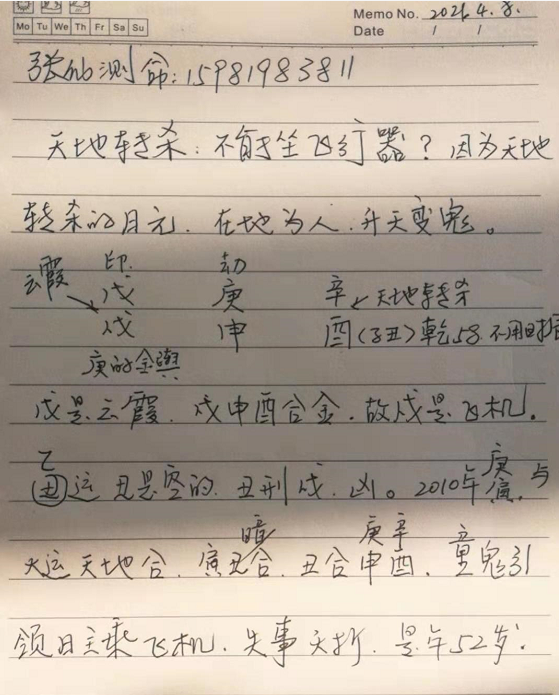 Memo No. 2021.4.8.
Mo Tu We Th Fr Sa Su
Date / /
张 测命:15981983811
天地转杀:不能坐飞行器?因为天地
转杀的日元.在地为人.升天变鬼。
印 劫
云霞 戊 庚 辛 天地转杀
戌 申 酉(子丑)乾58 不用时
庚的金舆
戊是云霞.戌申酉合金.故戌是飞机。
乙 庚
丑运 丑是空的.丑刑戌.凶。2010年寅.与
暗 庚辛
大运天地合.寅丑合.丑合申酉.童鬼引
领日主乘飞机.失事夭折.是年52岁.